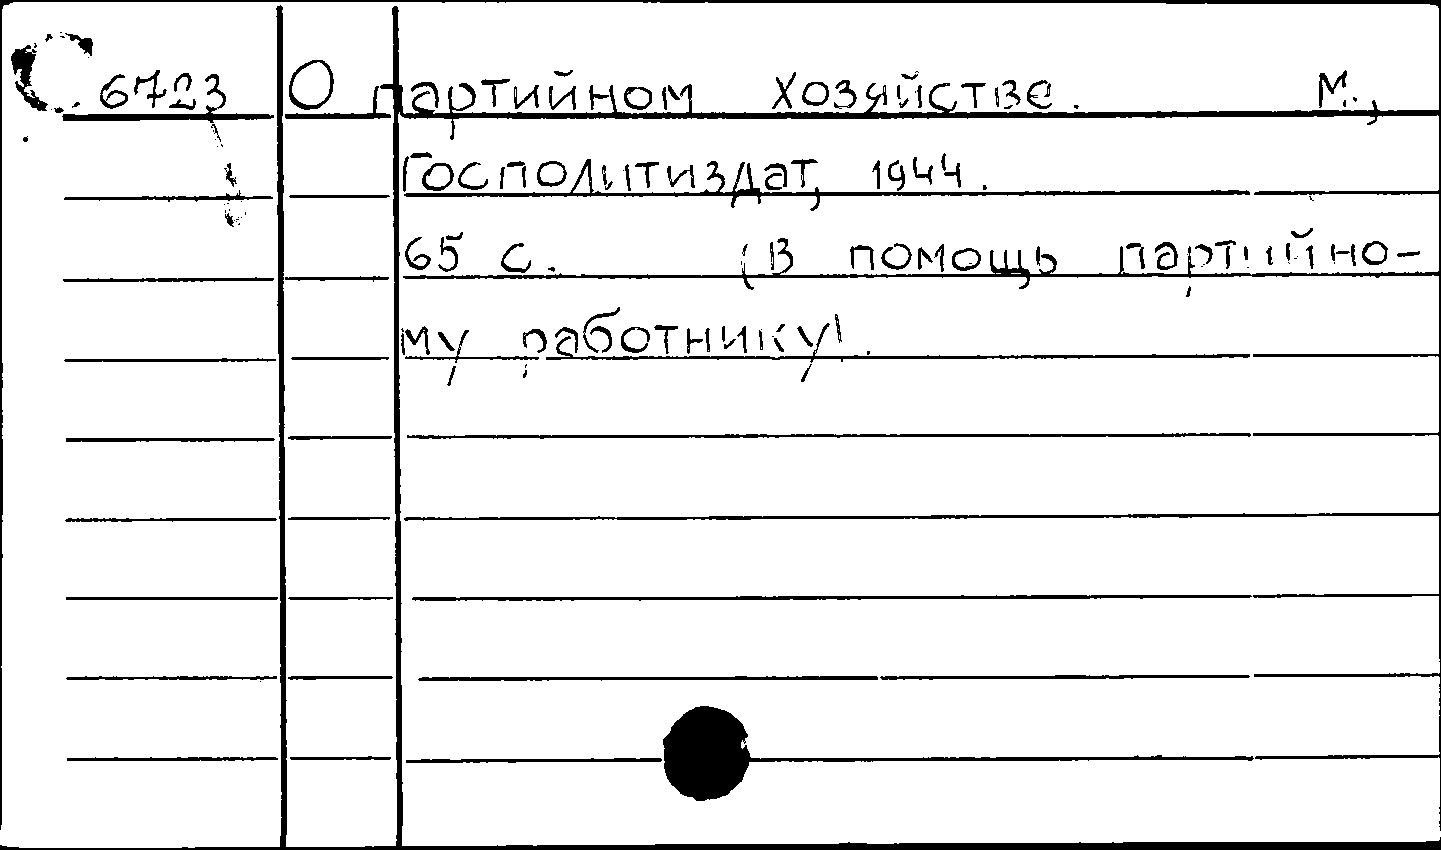 6723 О партийном хозяйстве. М.,
Госполитиздат, 1944.
65 с. (В помощь партийно-
му работнику).